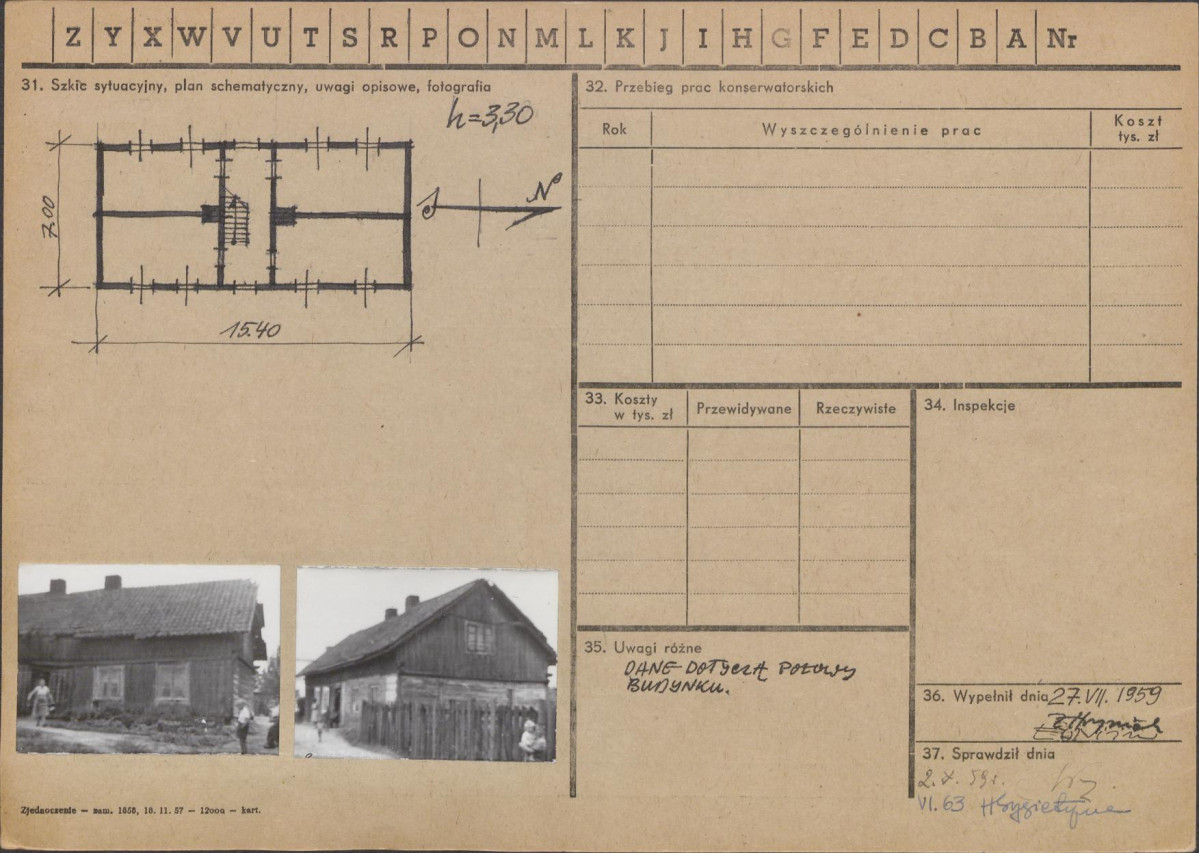 Z Y X W V U T S R P O N M L K J I H G F E D C B A Nr
31. Szkic sytuacyjny, plan schematyczny, uwagi opisowe, fotografia
h=3,30
7.00
N
15.40
32. Przebieg prac konserwatorskich
Rok
Wyszczególnienie prac
Koszt
tys. zł
33. Koszty
w tys. zł
Przewidywane
Rzeczywiste
34. Inspekcje
35. Uwagi różne
DANE DOTYCZĄ POŁOWY
BUDYNKU.
36. Wypełnił dnia 27.VII.1959
37. Sprawdził dnia
2.X.59r.
VI.63
Zjednoczenie — zam. 1656, 18. 11. 57 — 12000 — kart.